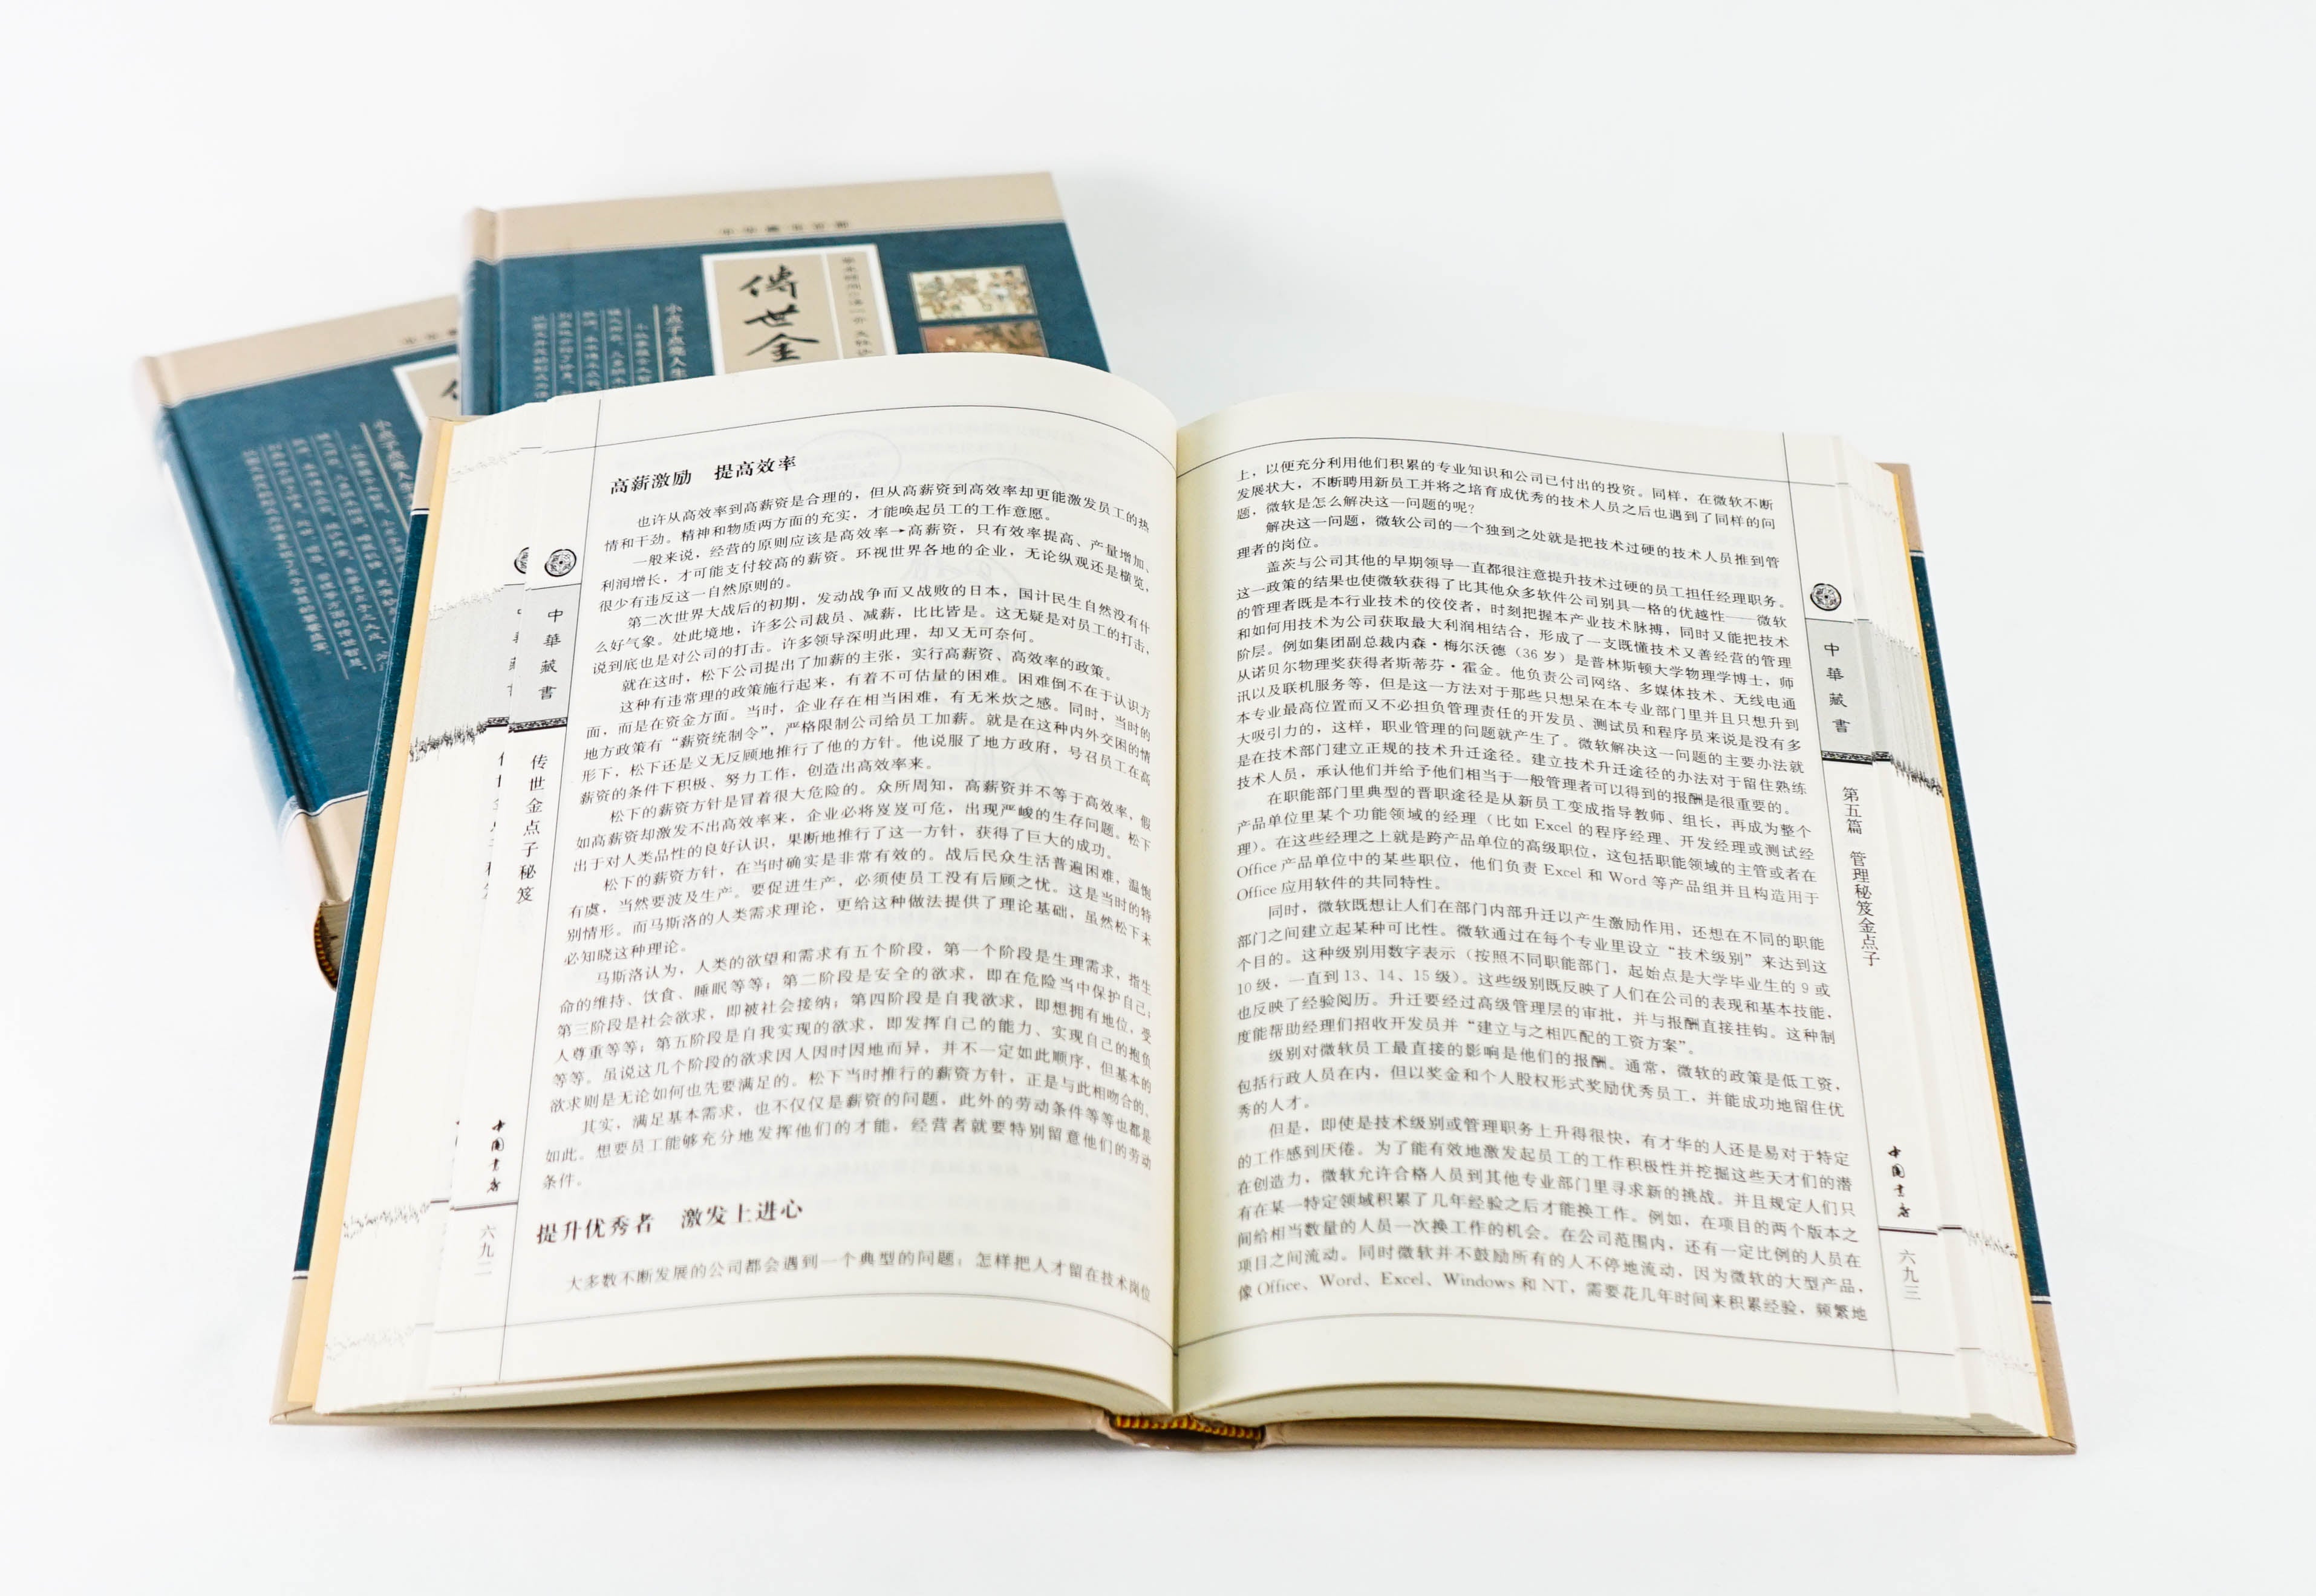 傳世金
小点子点亮人生
高薪激励　提高效率
也许从高效率到高薪资是合理的，但从高薪资到高效率却更能激发员工的热
情和干劲。精神和物质两方面的充实，才能唤起员工的工作意愿。
一般来说，经营的原则应该是高效率→高薪资，只有效率提高、产量增加、
利润增长，才可能支付较高的薪资。环视世界各地的企业，无论纵观还是横览，
很少有违反这一自然原则的。
第二次世界大战后的初期，发动战争而又战败的日本，国计民生自然没有什
么好气象。处此境地，许多公司裁员、减薪，比比皆是。这无疑是对员工的打击，
说到底也是对公司的打击。许多领导深明此理，却又无可奈何。
就在这时，松下公司提出了加薪的主张，实行高薪资、高效率的政策。
这种有违常理的政策施行起来，有着不可估量的困难。困难倒不在于认识方
面，而是在资金方面。当时，企业存在相当困难，有无米炊之感。同时，当时的
地方政策有“薪资统制令”，严格限制公司给员工加薪。就是在这种内外交困的情
形下，松下还是义无反顾地推行了他的方针。他说服了地方政府，号召员工在高
薪资的条件下积极、努力工作，创造出高效率来。
松下的薪资方针是冒着很大危险的。众所周知，高薪资并不等于高效率，假
如高薪资却激发不出高效率来，企业必将岌岌可危，出现严峻的生存问题。松下
出于对人类品性的良好认识，果断地推行了这一方针，获得了巨大的成功。
松下的薪资方针，在当时确实是非常有效的。战后民众生活普遍困难，温饱
有虞，当然要波及生产。要促进生产，必须使员工没有后顾之忧。这是当时的特
别情形。而马斯洛的人类需求理论，更给这种做法提供了理论基础，虽然松下未
必知晓这种理论。
马斯洛认为，人类的欲望和需求有五个阶段，第一个阶段是生理需求，指生
命的维持、饮食、睡眠等等；第二阶段是安全的欲求，即在危险当中保护自己；
第三阶段是社会欲求，即被社会接纳；第四阶段是自我欲求，即想拥有地位，受
人尊重等等；第五阶段是自我实现的欲求，即发挥自己的能力、实现自己的抱负
等等。虽说这几个阶段的欲求因人因时因地而异，并不一定如此顺序，但基本的
欲求则是无论如何也先要满足的。松下当时推行的薪资方针，正是与此相吻合的。
其实，满足基本需求，也不仅仅是薪资的问题，此外的劳动条件等等也都是
如此。想要员工能够充分地发挥他们的才能，经营者就要特别留意他们的劳动
条件。
提升优秀者　激发上进心
大多数不断发展的公司都会遇到一个典型的问题：怎样把人才留在技术岗位
中華藏書
传世金点子秘笈
中国书店
六九二
上，以便充分利用他们积累的专业知识和公司已付出的投资。同样，在微软不断
发展状大，不断聘用新员工并将之培育成优秀的技术人员之后也遇到了同样的问
题，微软是怎么解决这一问题的呢？
解决这一问题，微软公司的一个独到之处就是把技术过硬的技术人员推到管
理者的岗位。
盖茨与公司其他的早期领导一直都很注意提升技术过硬的员工担任经理职务。
这一政策的结果也使微软获得了比其他众多软件公司别具一格的优越性——微软
的管理者既是本行业技术的佼佼者，时刻把握本产业技术脉搏，同时又能把技术
和如何用技术为公司获取最大利润相结合，形成了一支既懂技术又善经营的管理
阶层。例如集团副总裁内森·梅尔沃德（36岁）是普林斯顿大学物理学博士，师
从诺贝尔物理奖获得者斯蒂芬·霍金。他负责公司网络、多媒体技术、无线电通
讯以及联机服务等，但是这一方法对于那些只想呆在本专业部门里并且只想升到
本专业最高位置而又不必担负管理责任的开发员、测试员和程序员来说是没有多
大吸引力的，这样，职业管理的问题就产生了。微软解决这一问题的主要办法就
是在技术部门建立正规的技术升迁途径。建立技术升迁途径的办法对于留住熟练
技术人员，承认他们并给予他们相当于一般管理者可以得到的报酬是很重要的。
在职能部门里典型的晋职途径是从新员工变成指导教师、组长，再成为整个
产品单位里某个功能领域的经理（比如 Excel 的程序经理、开发经理或测试经
理）。在这些经理之上就是跨产品单位的高级职位，这包括职能领域的主管或者在
Office 产品单位中的某些职位，他们负责 Excel 和 Word 等产品组并且构造用于
Office 应用软件的共同特性。
同时，微软既想让人们在部门内部升迁以产生激励作用，还想在不同的职能
部门之间建立起某种可比性。微软通过在每个专业里设立“技术级别”来达到这
个目的。这种级别用数字表示（按照不同职能部门，起始点是大学毕业生的 9 或
10 级，一直到 13、14、15 级）。这些级别既反映了人们在公司的表现和基本技能，
也反映了经验阅历。升迁要经过高级管理层的审批，并与报酬直接挂钩。这种制
度能帮助经理们招收开发员并“建立与之相匹配的工资方案”。
级别对微软员工最直接的影响是他们的报酬。通常，微软的政策是低工资，
包括行政人员在内，但以奖金和个人股权形式奖励优秀员工，并能成功地留住优
秀的人才。
但是，即使是技术级别或管理职务上升得很快，有才华的人还是易对于特定
的工作感到厌倦。为了能有效地激发起员工的工作积极性并挖掘这些天才们的潜
在创造力，微软允许合格人员到其他专业部门里寻求新的挑战。并且规定人们只
有在某一特定领域积累了几年经验之后才能换工作。例如，在项目的两个版本之
间给相当数量的人员一次换工作的机会。在公司范围内，还有一定比例的人员在
项目之间流动。同时微软并不鼓励所有的人不停地流动，因为微软的大型产品，
像 Office、Word、Excel、Windows 和 NT，需要花几年时间来积累经验，频繁地
中華藏書
第五篇　管理秘笈金点子
中国书店
六九三